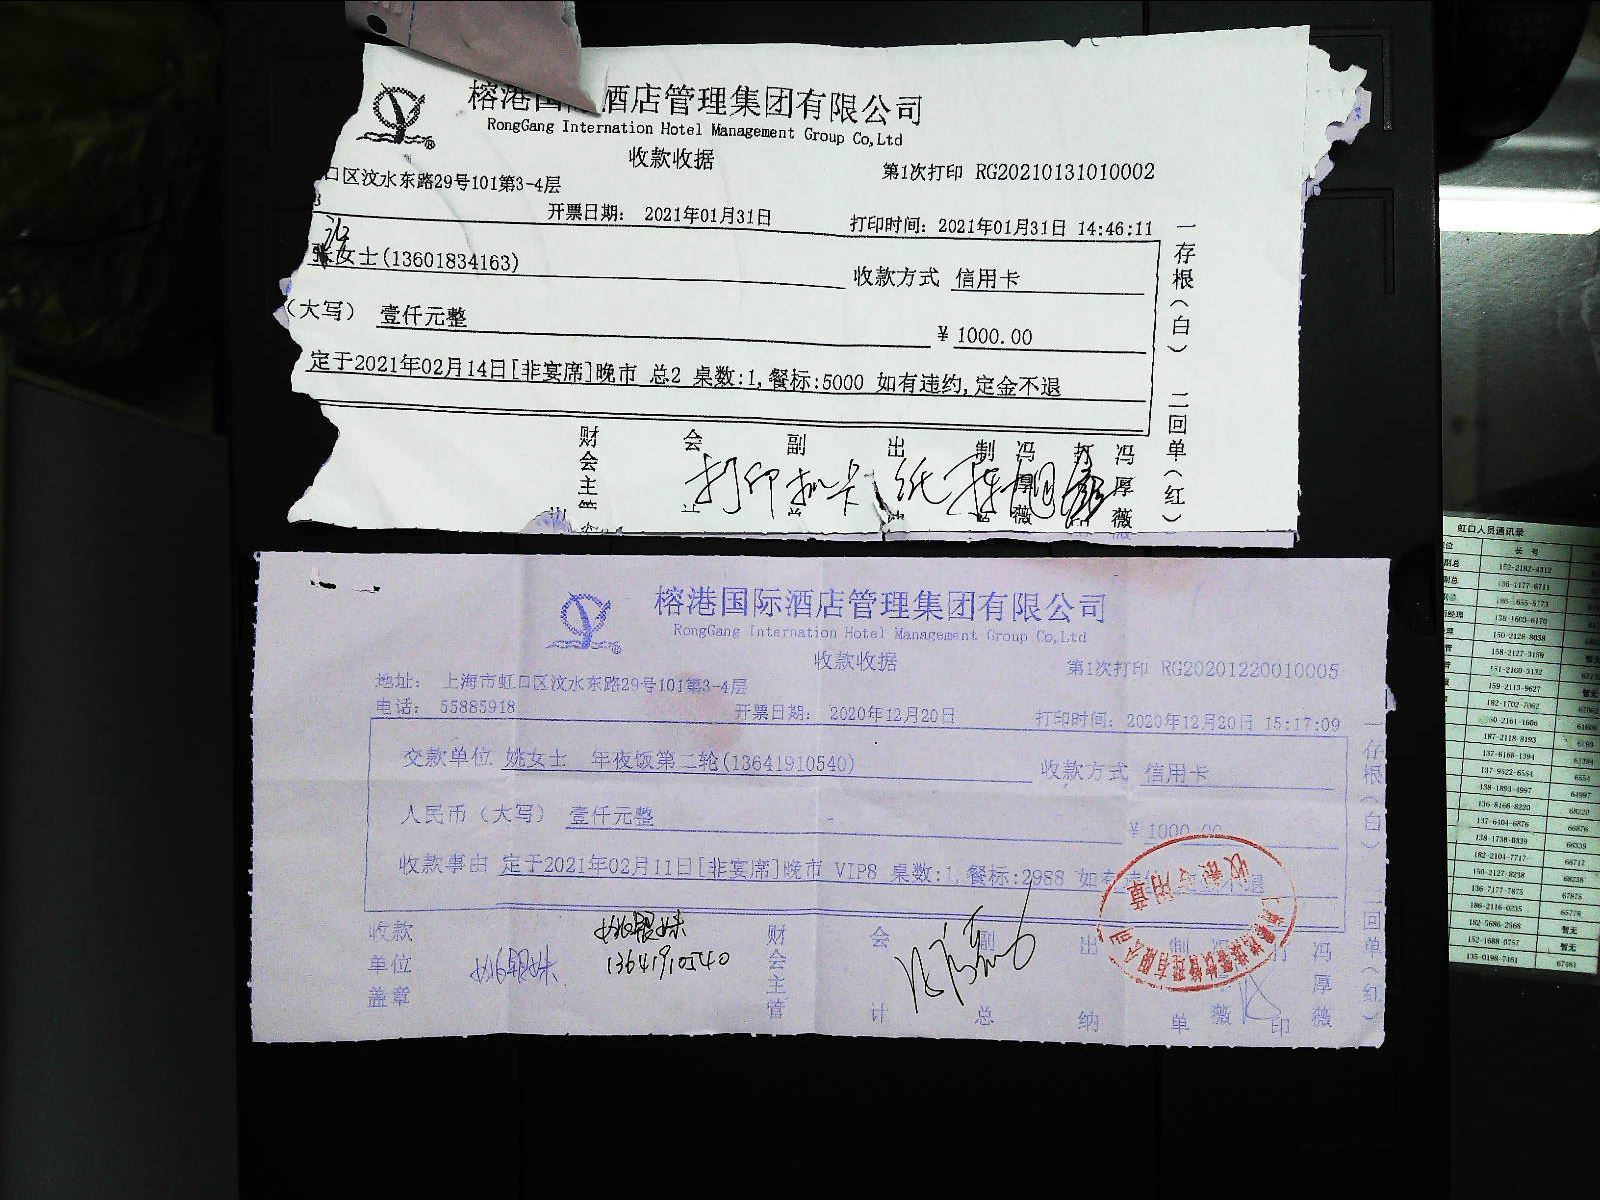 榕港国际酒店管理集团有限公司
RongGang Internation Hotel Management Group Co,Ltd
收款收据
第1次打印 RG20210131010002
口区汶水东路29号101第3-4层
开票日期: 2021年01月31日
打印时间: 2021年01月31日 14:46:11
张女士(13601834163)
收款方式 信用卡
(大写) 壹仟元整
¥ 1000.00
定于2021年02月14日[非宴席]晚市 总2 桌数:1,餐标:5000 如有违约,定金不退
财会主管 会 副 出 制 冯厚薇 打 冯厚薇
打印机卡纸
一存根(白) 二回单(红)
榕港国际酒店管理集团有限公司
RongGang Internation Hotel Management Group Co,Ltd
收款收据
第1次打印 RG20201220010005
地址: 上海市虹口区汶水东路29号101第3-4层
电话: 55885918
开票日期: 2020年12月20日
打印时间: 2020年12月20日 15:17:09
交款单位 姚女士 年夜饭第二轮(13641910540)
收款方式 信用卡
人民币(大写) 壹仟元整
¥ 1000.00
收款事由 定于2021年02月11日[非宴席]晚市 VIP8 桌数:1,餐标:2988 如有违 退
收款单位盖章
姚银妹
姚银妹
13641910540
财会主管 会计 副总 出纳 制单 冯厚薇 打印 冯厚薇
收银专用章
一存根(白) 二回单(红)
虹口人员通讯录
长 号
152-2182-4312
136-1177-6711
186-1655-5773
138-1603-6170
150-2128-8038
158-2127-3159
151-2160-3132
159-2113-9627
182-1702-7062
187-2118-8193
137-6168-1394
137-9522-6554
138-1893-4997
136-8166-8220
137-6404-6876
138-1738-0339
182-2104-7717
150-2127-8238
136-7177-7875
186-2116-0235
182-5686-2568
152-1688-0757
135-0198-7461